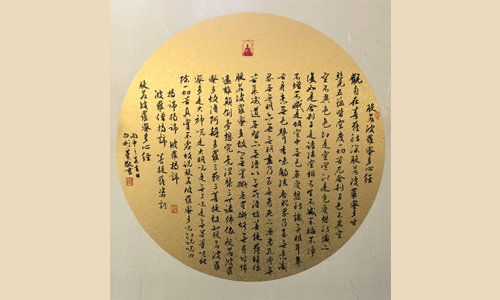 般若波羅蜜多心經
觀自在菩薩行深般若波羅蜜多時
照見五蘊皆空度一切苦厄舍利子色不異空
空不異色色即是空空即是色受想行識亦
復如是舍利子是諸法空相不生不滅不垢不淨
不增不減是故空中無色無受想行識無眼耳鼻
舌身意無色聲香味觸法無眼界乃至無意識
界無無明亦無無明盡乃至無老死亦無老死盡無
苦集滅道無智亦無得以無所得故菩提薩埵依
般若波羅蜜多故心無罣礙無罣礙故無有恐怖
遠離顛倒夢想究竟涅槃三世諸佛依般若波羅
蜜多故得阿耨多羅三藐三菩提故知般若波羅
蜜多是大神咒是大明咒是無上咒是無等等咒能
除一切苦真實不虛故說般若波羅蜜多咒即說咒曰
揭諦揭諦 波羅揭諦
波羅僧揭諦 菩提薩婆訶
般若波羅蜜多心經
丙申